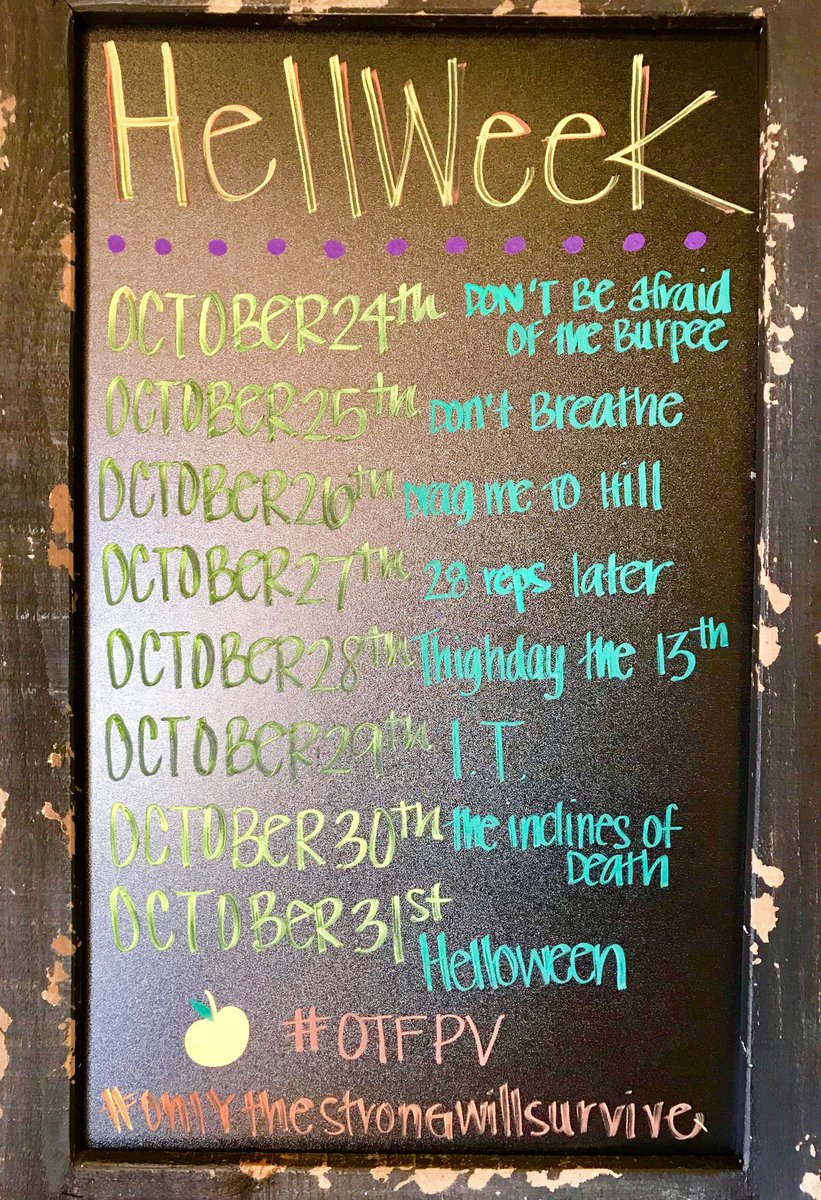 HellWeek
OCTOBER 24th DON'T Be afraid
OF the BURPEE
OCTOBER 25th Don't Breathe
OCTOBER 26th Drag me TO Hill
OCTOBER 27th 28 reps later
OCTOBER 28th Thighday the 13th
OCTOBER 29th I.T.
OCTOBER 30th the inclines of
Death
OCTOBER 31st
Helloween
#OTFPV
#onlythestrongwillsurvive